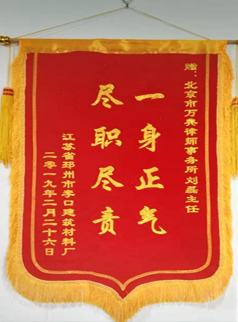 赠：北京市万典律师事务所刘磊主任
一身正气
尽职尽责
江苏省邳州市李口建筑材料厂
二零一九年二月二十六日